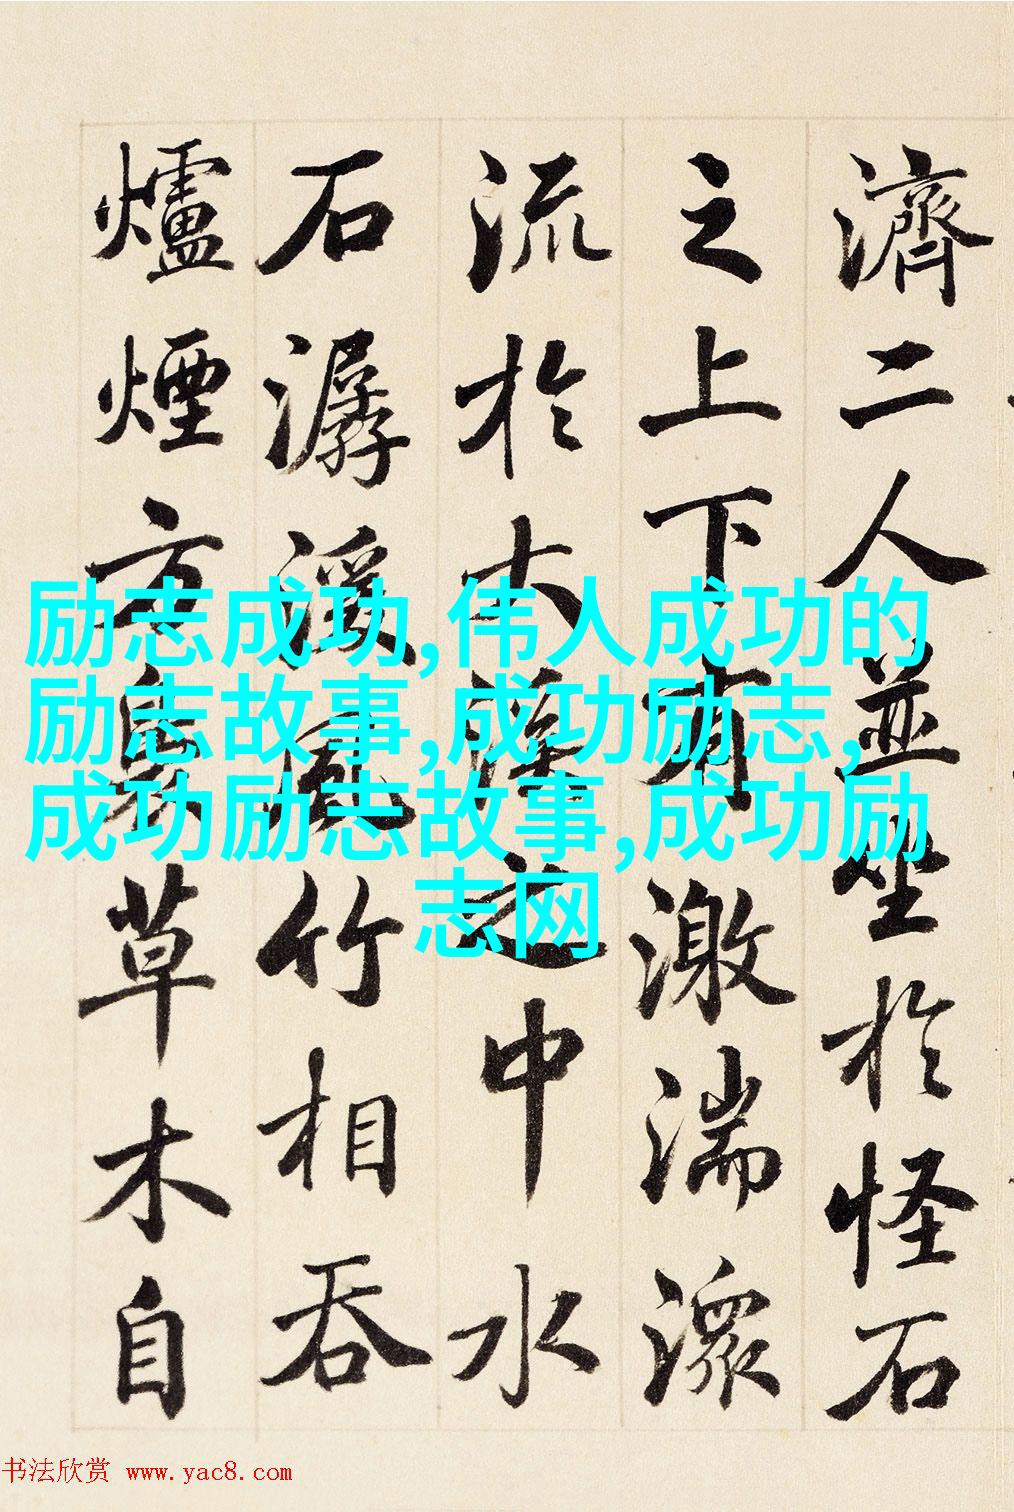 濟二人並坐於怪石
之上下有激湍潨
流於大溪之中水
石潺湲風竹相吞
爐煙方裊草木自
励志成功,伟人成功的
励志故事,成功励志,
成功励志故事,成功励
志网
书法欣赏 www.yac8.com